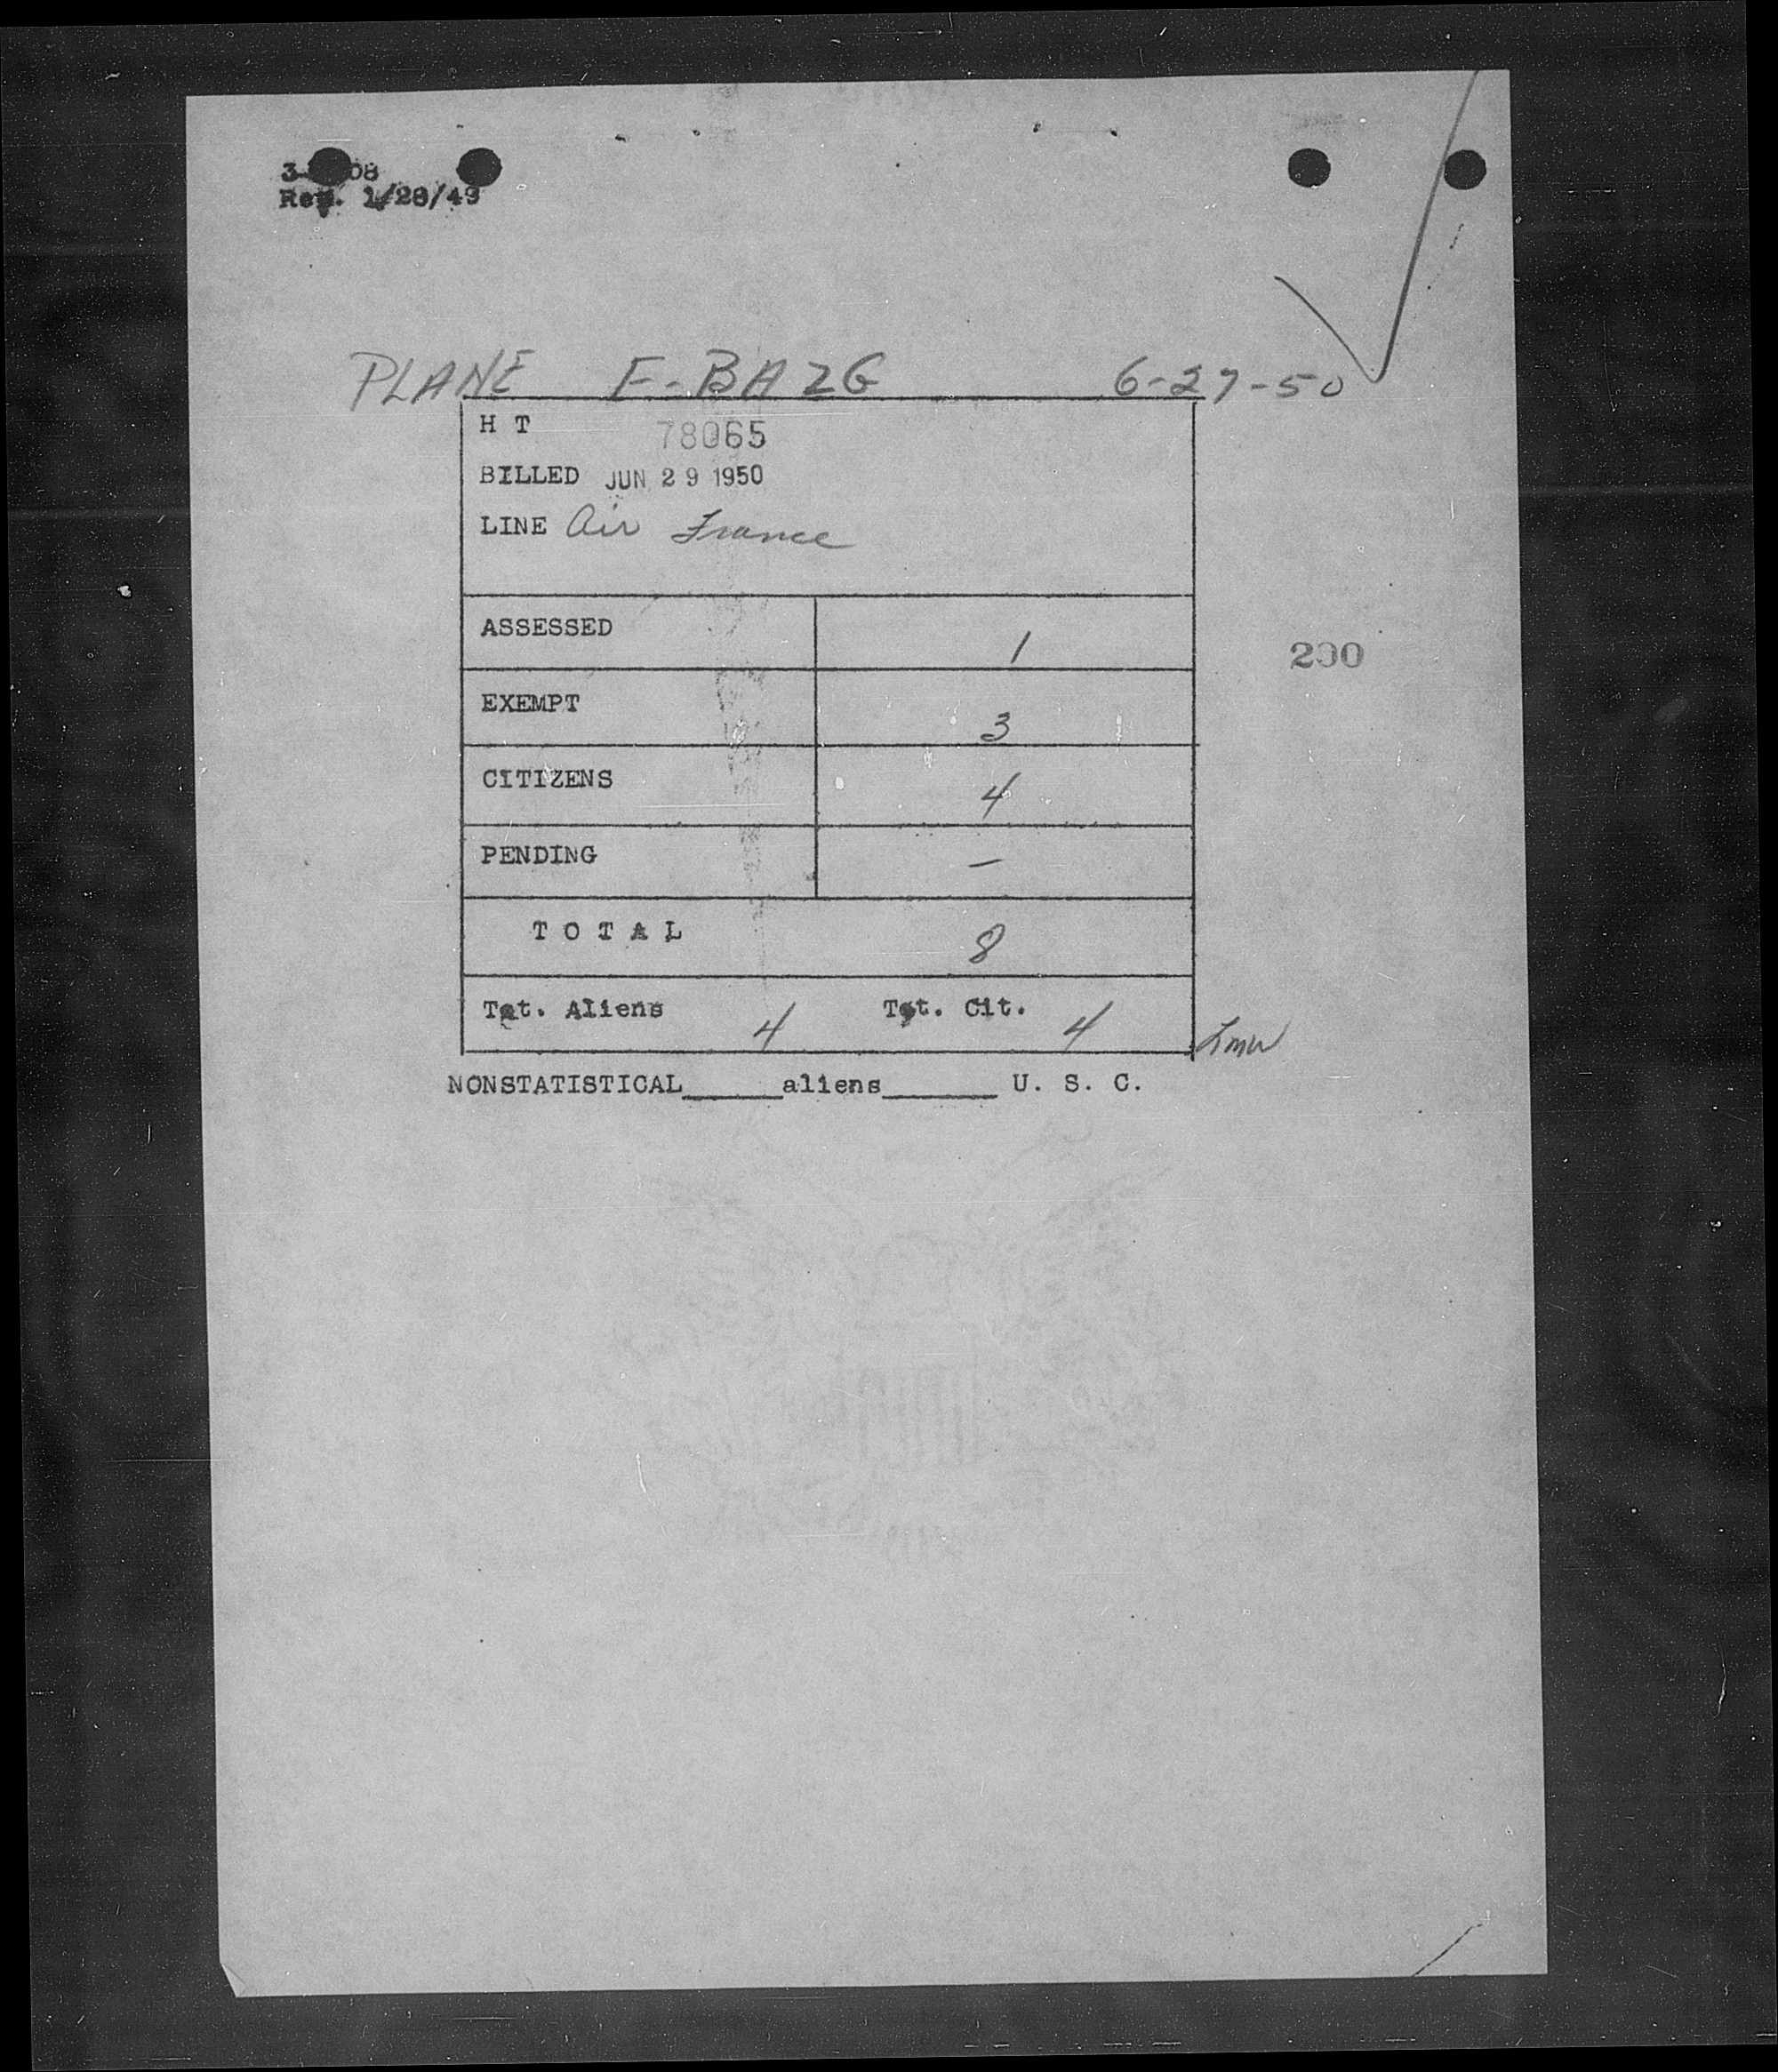 Rev. 1/28/49
PLANE F-BAZG 6-27-50
H T 78065
BILLED JUN 29 1950
LINE Air France
ASSESSED 1
200
EXEMPT 3
CITIZENS 4
PENDING —
TOTAL 8
Tot. Aliens 4 Tot. Cit. 4
NONSTATISTICAL_____aliens______ U. S. C.